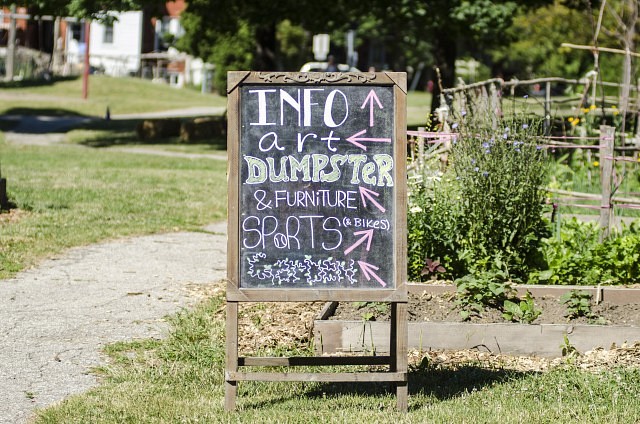 INFO
art
DUMPSTeR
& FURNiTURE
SPORTS (& BiKES)